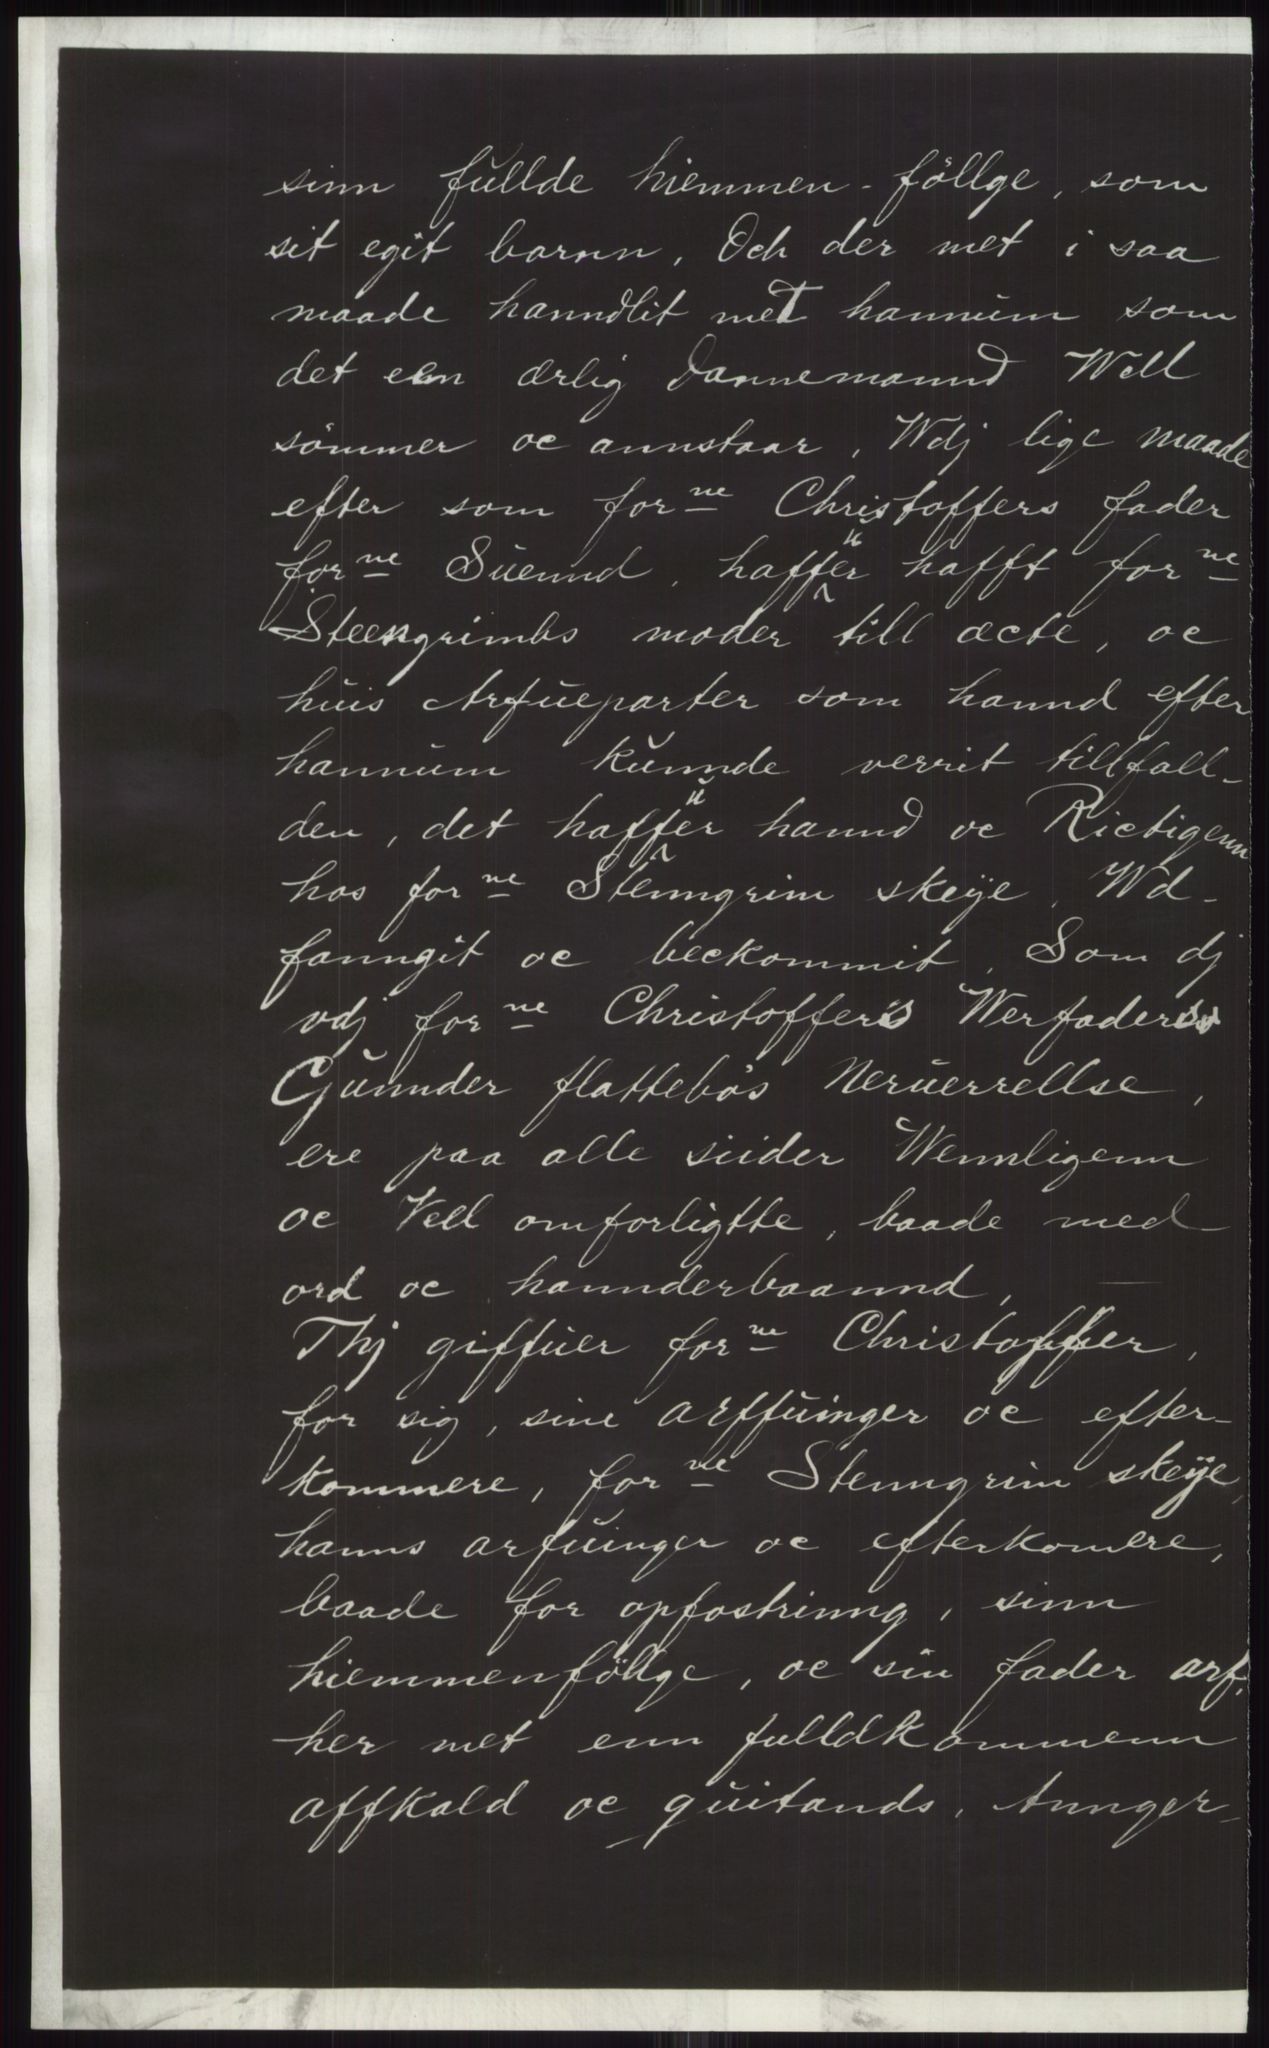 sinn fullde hiemmen-föllge, som
sit egit barnn, Och der met i saa
maade hanndlit met hannum som
det een ærlig Dannemannd Well
sömmer oc annstaar, Wdj lige maade
efter som for<sup>ne</sup> Christoffers fader
for<sup>ne</sup> Suennd, haffuer hafft for<sup>ne</sup>
Steengrimbs moder till æcte, oc
huis Arfueparter som hannd efter
hannum kunnde verrit tillfall-
den, det haffuer hannd oc Rictigenn
hos for<sup>ne</sup> Stenngrim skeye, Wd-
fanngit oc beckommit, Som dj
vdj for<sup>ne</sup> Christoffers Werfaders
Gunnder flattebös Neruerrellse,
ere paa alle siider Wennligenn
oc Vell omforligtte, baade med
ord oc hannderbaannd, —
Thj giffuer for<sup>ne</sup> Christoffer,
for sig, sine arffuinger oc efter-
kommere, for<sup>ne</sup> Stenngrim skeye,
hanns arfuinger oc efterkomere,
baade for opfostrinng, sinn
hiemmenföllge, oc sin fader arf,
her met enn fulldkommenn
affkald oc quitands, Annger-